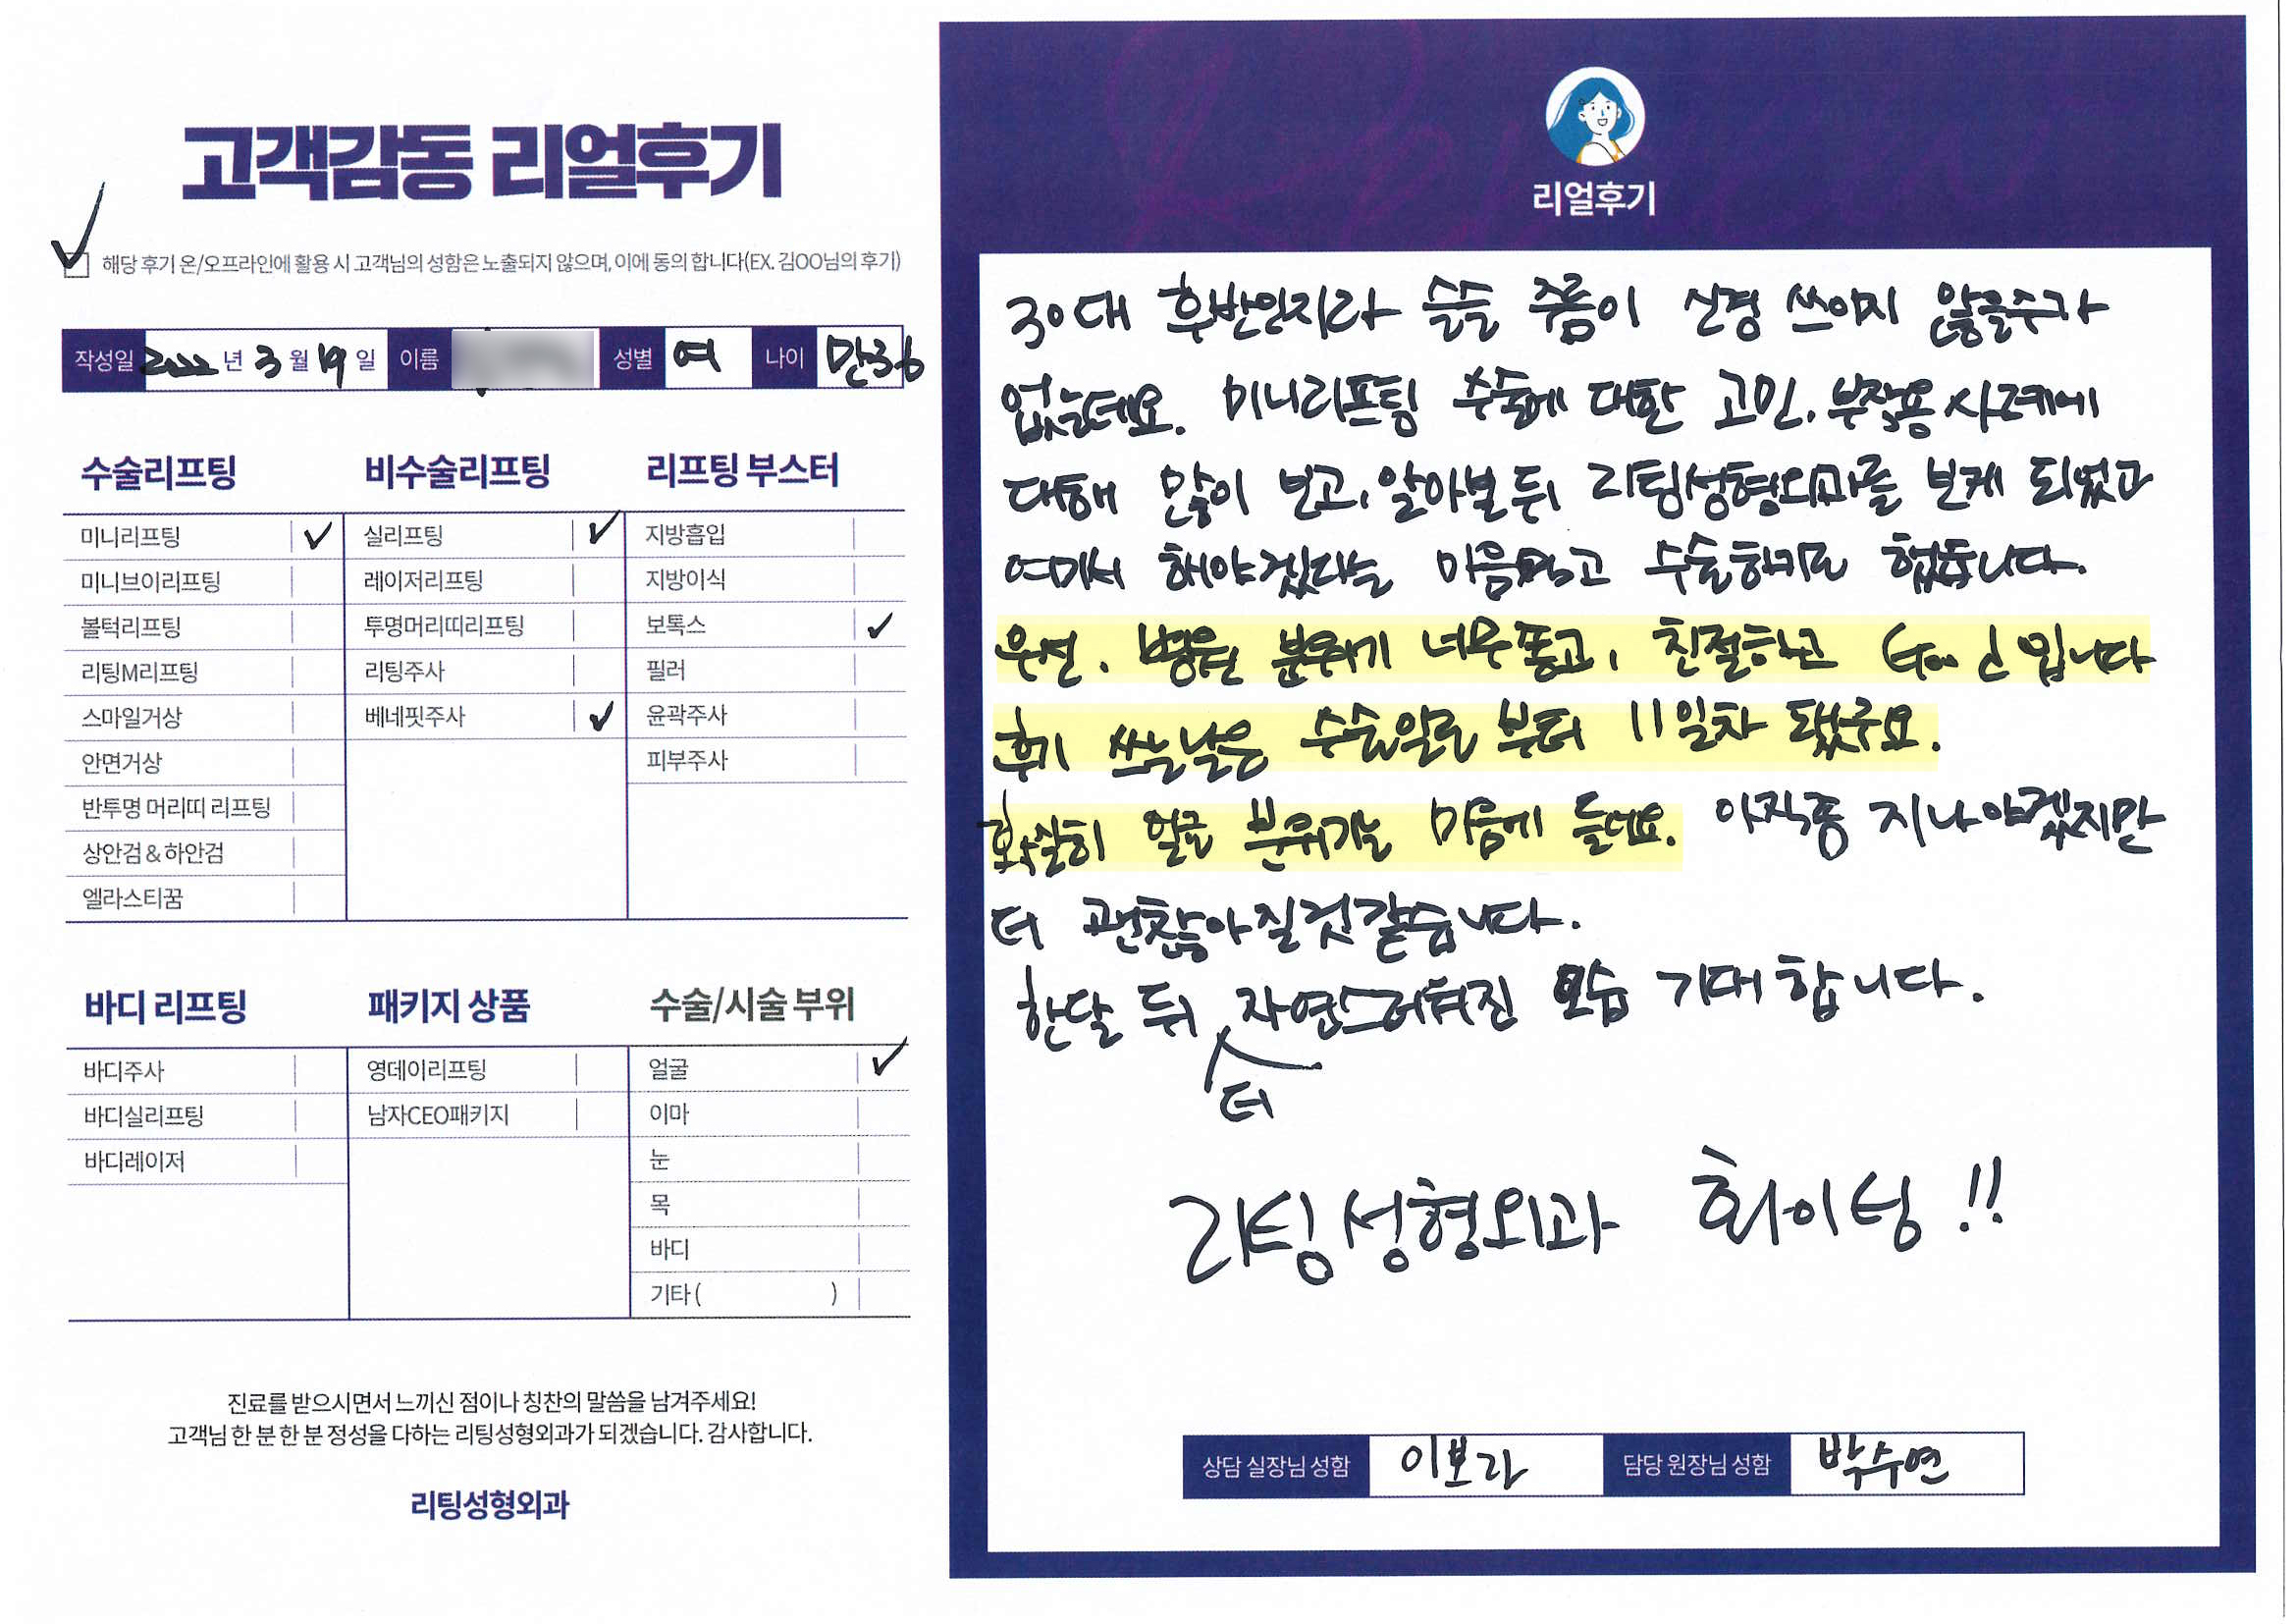 고객감동 리얼후기
해당 후기 온/오프라인에 활용 시 고객님의 성함은 노출되지 않으며, 이에 동의 합니다(EX. 김OO님의 후기)
작성일 2022 년 3 월 19 일 이름 성별 여 나이 만36
수술리프팅
미니리프팅 ✓
미니브이리프팅
볼턱리프팅
리팅M리프팅
스마일거상
안면거상
반투명 머리띠 리프팅
상안검 & 하안검
엘라스티꿈
비수술리프팅
실리프팅 ✓
레이저리프팅
투명머리띠리프팅
리팅주사
베네핏주사 ✓
리프팅 부스터
지방흡입
지방이식
보톡스 ✓
필러
윤곽주사
피부주사
바디 리프팅
바디주사
바디실리프팅
바디레이저
패키지 상품
영데이리프팅
남자CEO패키지
수술/시술 부위
얼굴 ✓
이마
눈
목
바디
기타 ( )
진료를 받으시면서 느끼신 점이나 칭찬의 말씀을 남겨주세요!
고객님 한 분 한 분 정성을 다하는 리팅성형외과가 되겠습니다. 감사합니다.
리팅성형외과
리얼후기
30대 후반인지라 슬슬 주름이 신경 쓰이지 않을수가
없는데요. 미니리프팅 수술에 대한 고민, 부작용 사례에
대해 많이 보고, 알아본 뒤 리팅성형외과를 보게 되었고
여기서 해야겠다는 마음먹고 수술하기로 했습니다.
우선, 병원 분위기 너무좋고, 친절하고 Good 입니다
후기 쓰는날은 수술일로 부터 11일차 됐구요.
확실히 얼굴 분위기는 마음에 들데요. 아직좀 지나야겠지만
더 괜찮아질것같습니다.
한달 뒤 더 자연스러워진 모습 기대 합니다.
리팅성형외과 화이팅!!
상담 실장님 성함 이보라 담당 원장님 성함 박수연